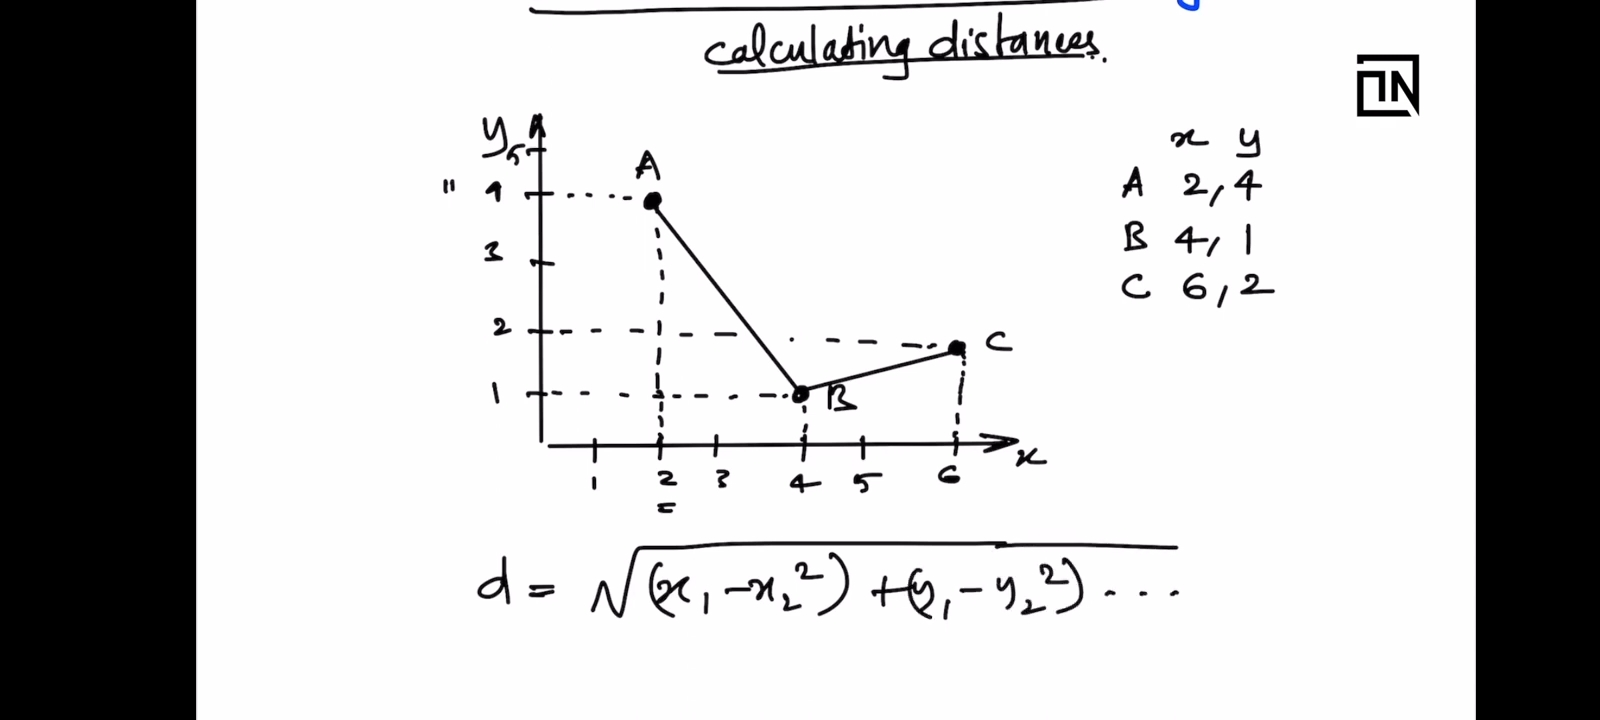 calculating distances.
y
5
A
" 4
3
2
C
1
B
x
1 2 3 4 5 6
=
x y
A 2, 4
B 4, 1
C 6, 2
d = √(x₁ - x₂²) + (y₁ - y₂²) ....